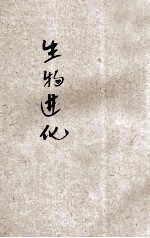 生物进化